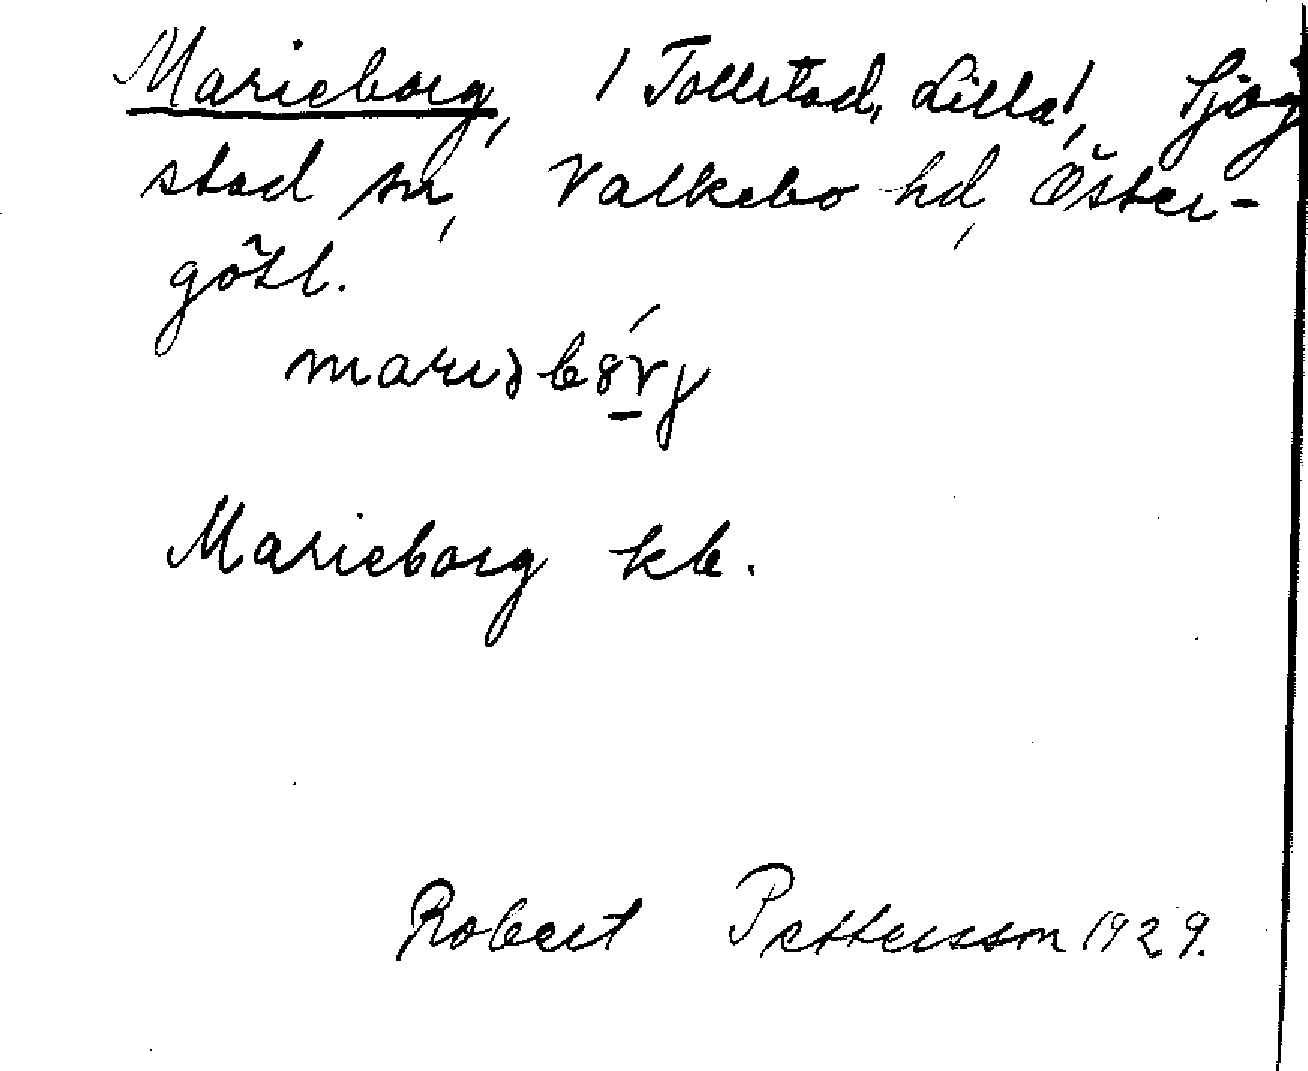 Marieborg, / Tollstad, Lilla/, Sjög
stad sn, Valkebo hd, Öster-
götl.
Marieborg kb.
Robert Pettersson 1929.